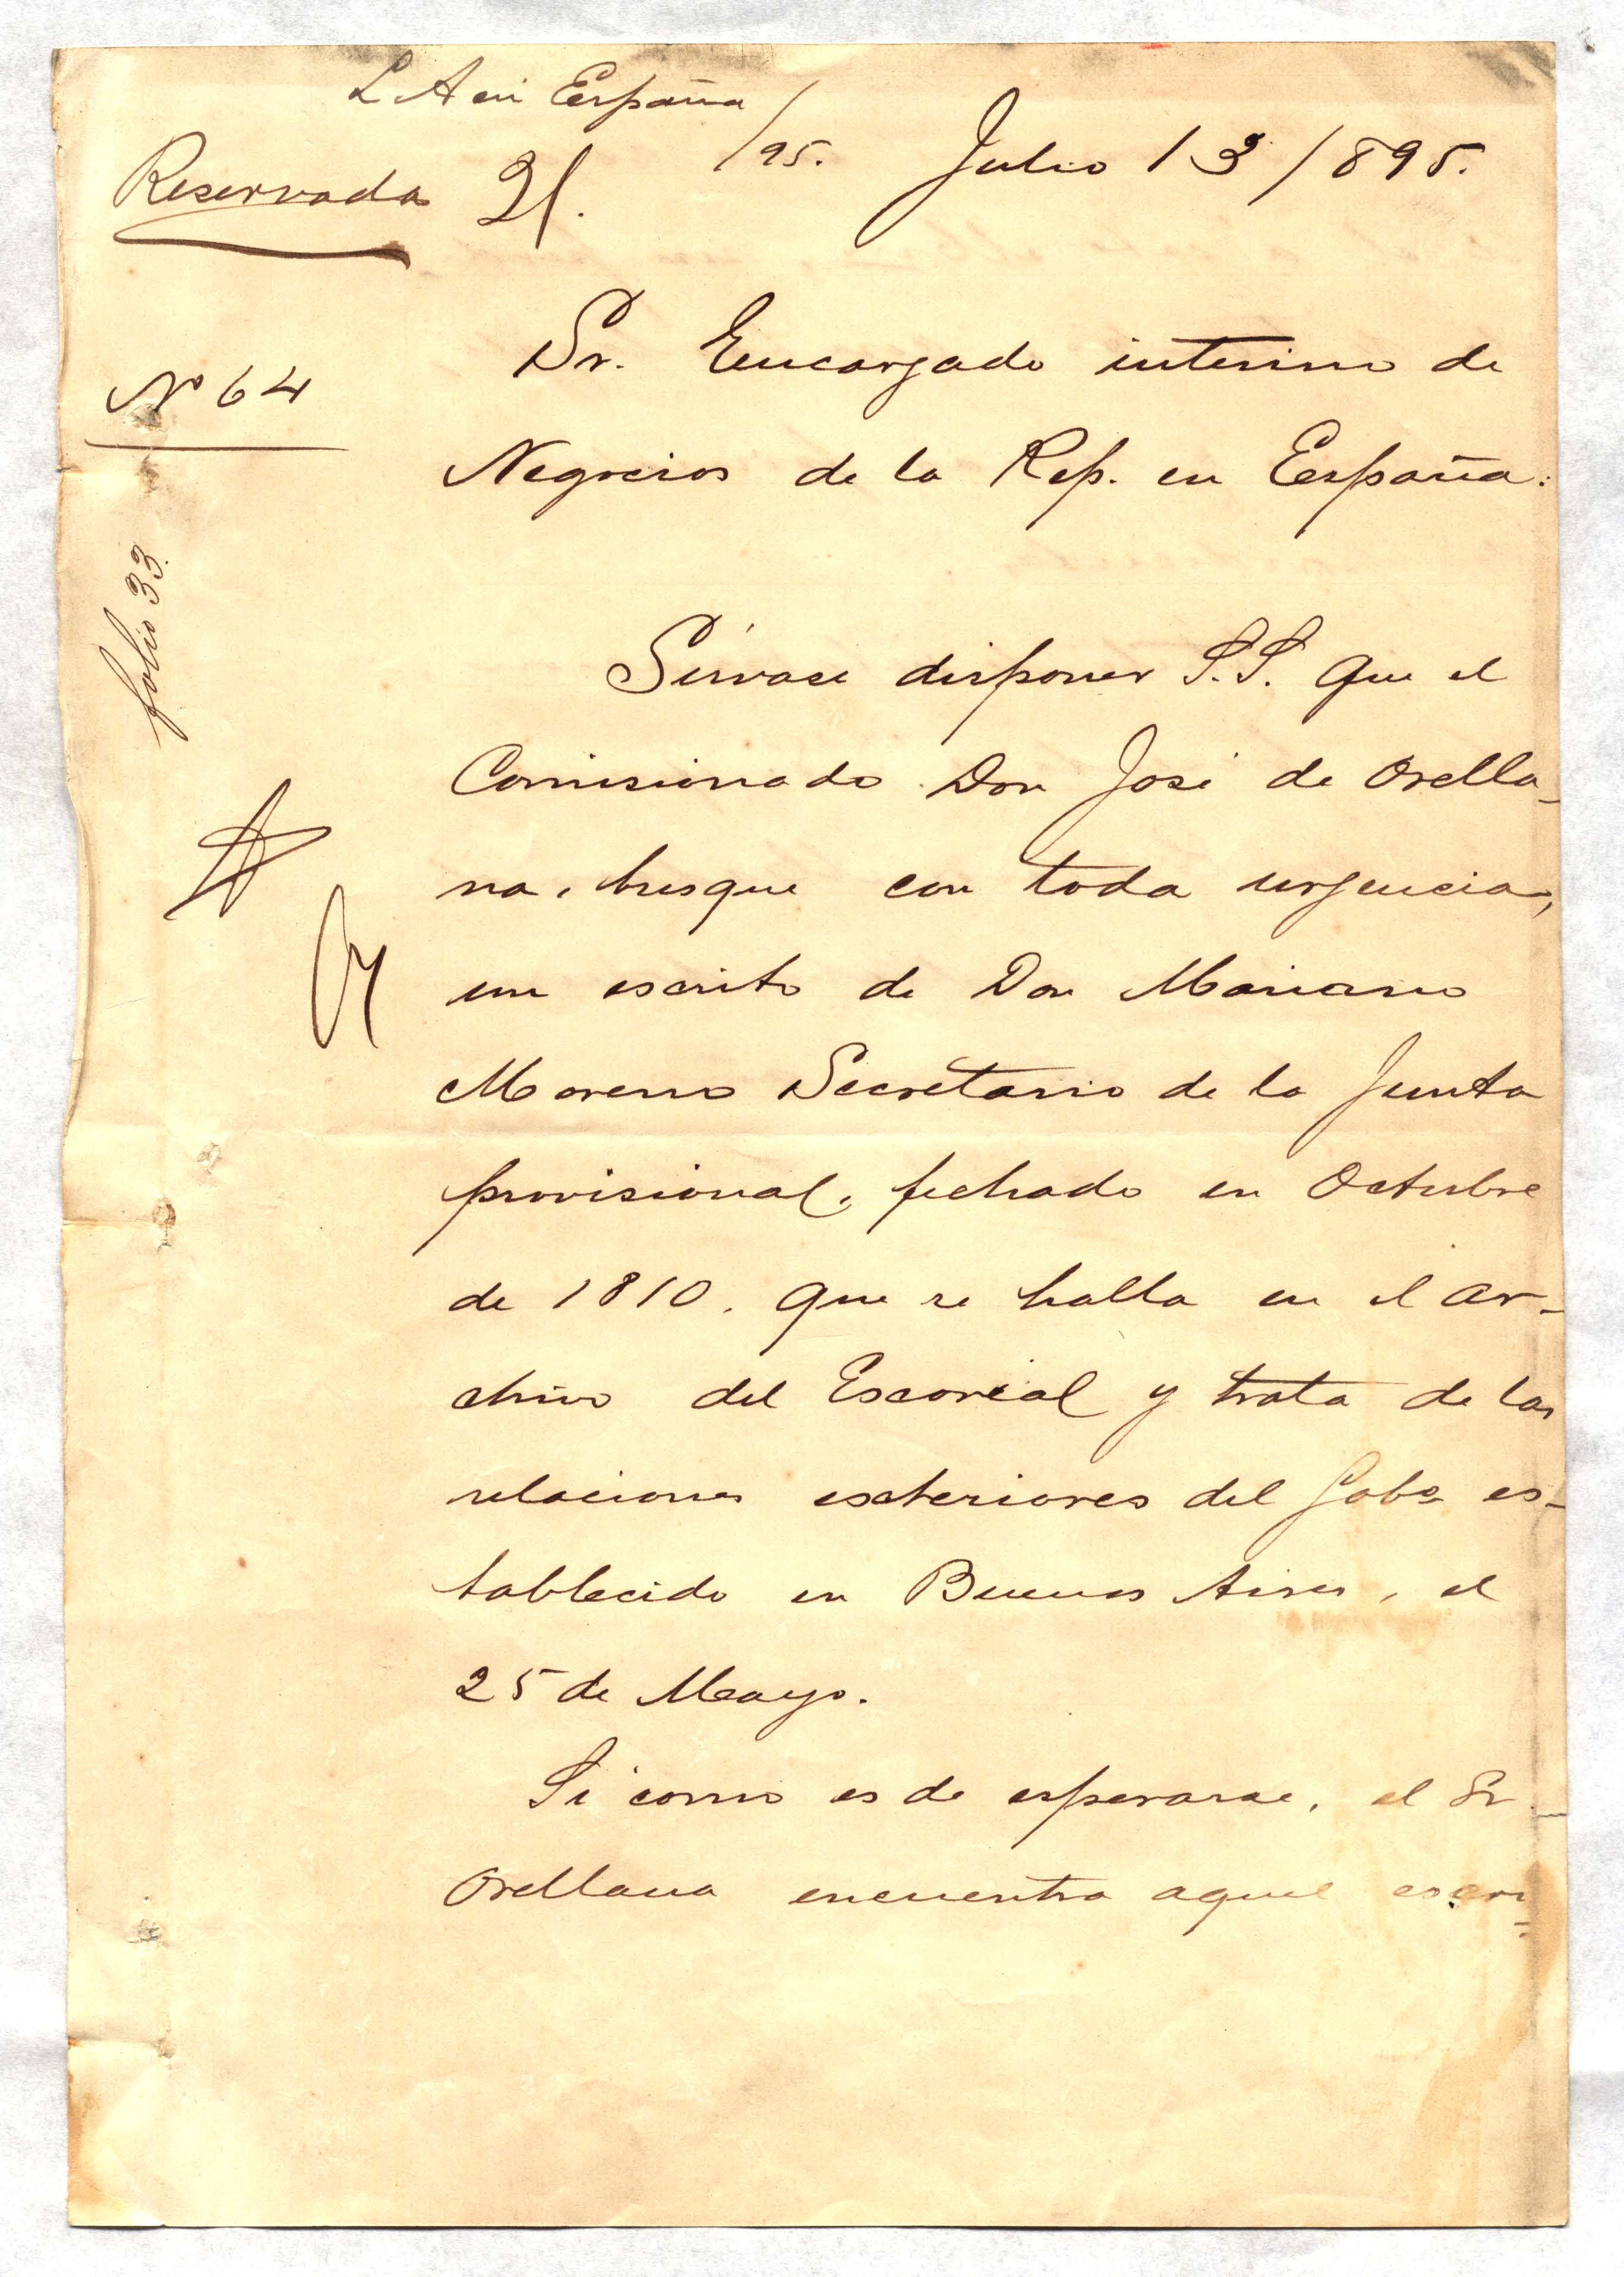 L A en España
/95.
Julio 13/895.
Reservada 21.
Sr. Encargado interino de
Nº 64
Negocios de la Rep. en España:
folio 33
Sírvase disponer S.S. que el
Comisionado Don José de Orella-
na, busque con toda urgencia,
un escrito de Don Mariano
Moreno Secretario de la Junta
provisional, fechado en Octubre
de 1810, que se halla en el ar-
chivo del Escorial y trata de las
relaciones exteriores del Gobº es-
tablecido en Buenos Aires, el
25 de Mayo.
Si como es de esperarse, el Sr.
Orellana encuentra aquel escri-